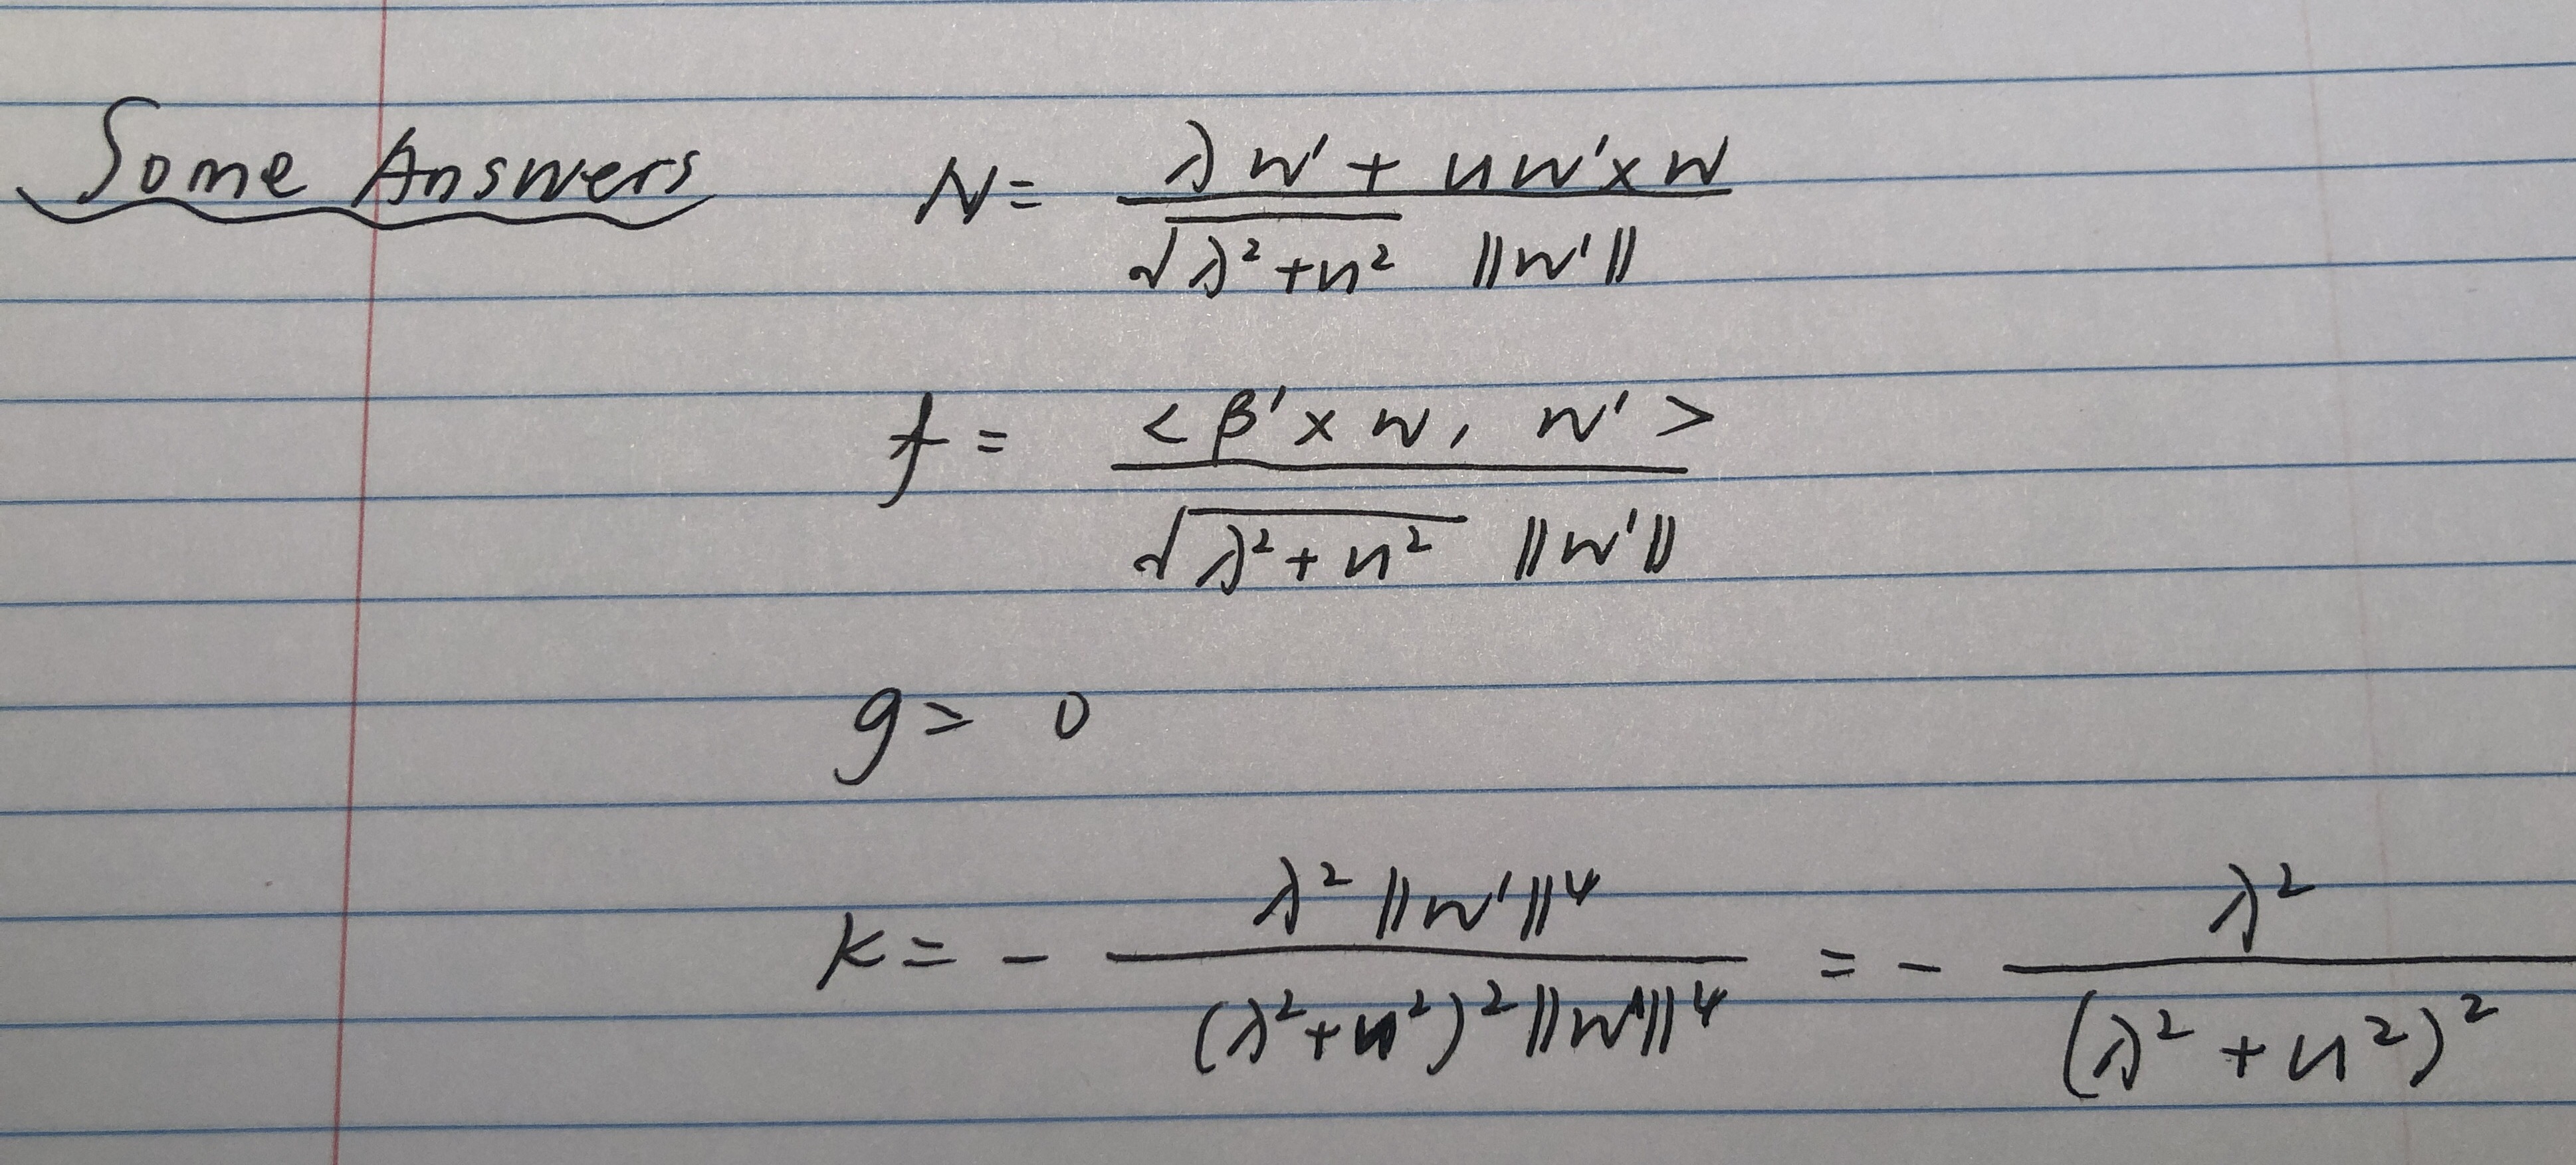 Some Answers N = \frac{\lambda w' + u w' \times w}{\sqrt{\lambda^2 + u^2} \|w'\|}
f = \frac{< \beta' \times w, w' >}{\sqrt{\lambda^2 + u^2} \|w'\|}
g = 0
K = - \frac{\lambda^2 \|w'\|^4}{(\lambda^2 + u^2)^2 \|w'\|^4} = - \frac{\lambda^2}{(\lambda^2 + u^2)^2}